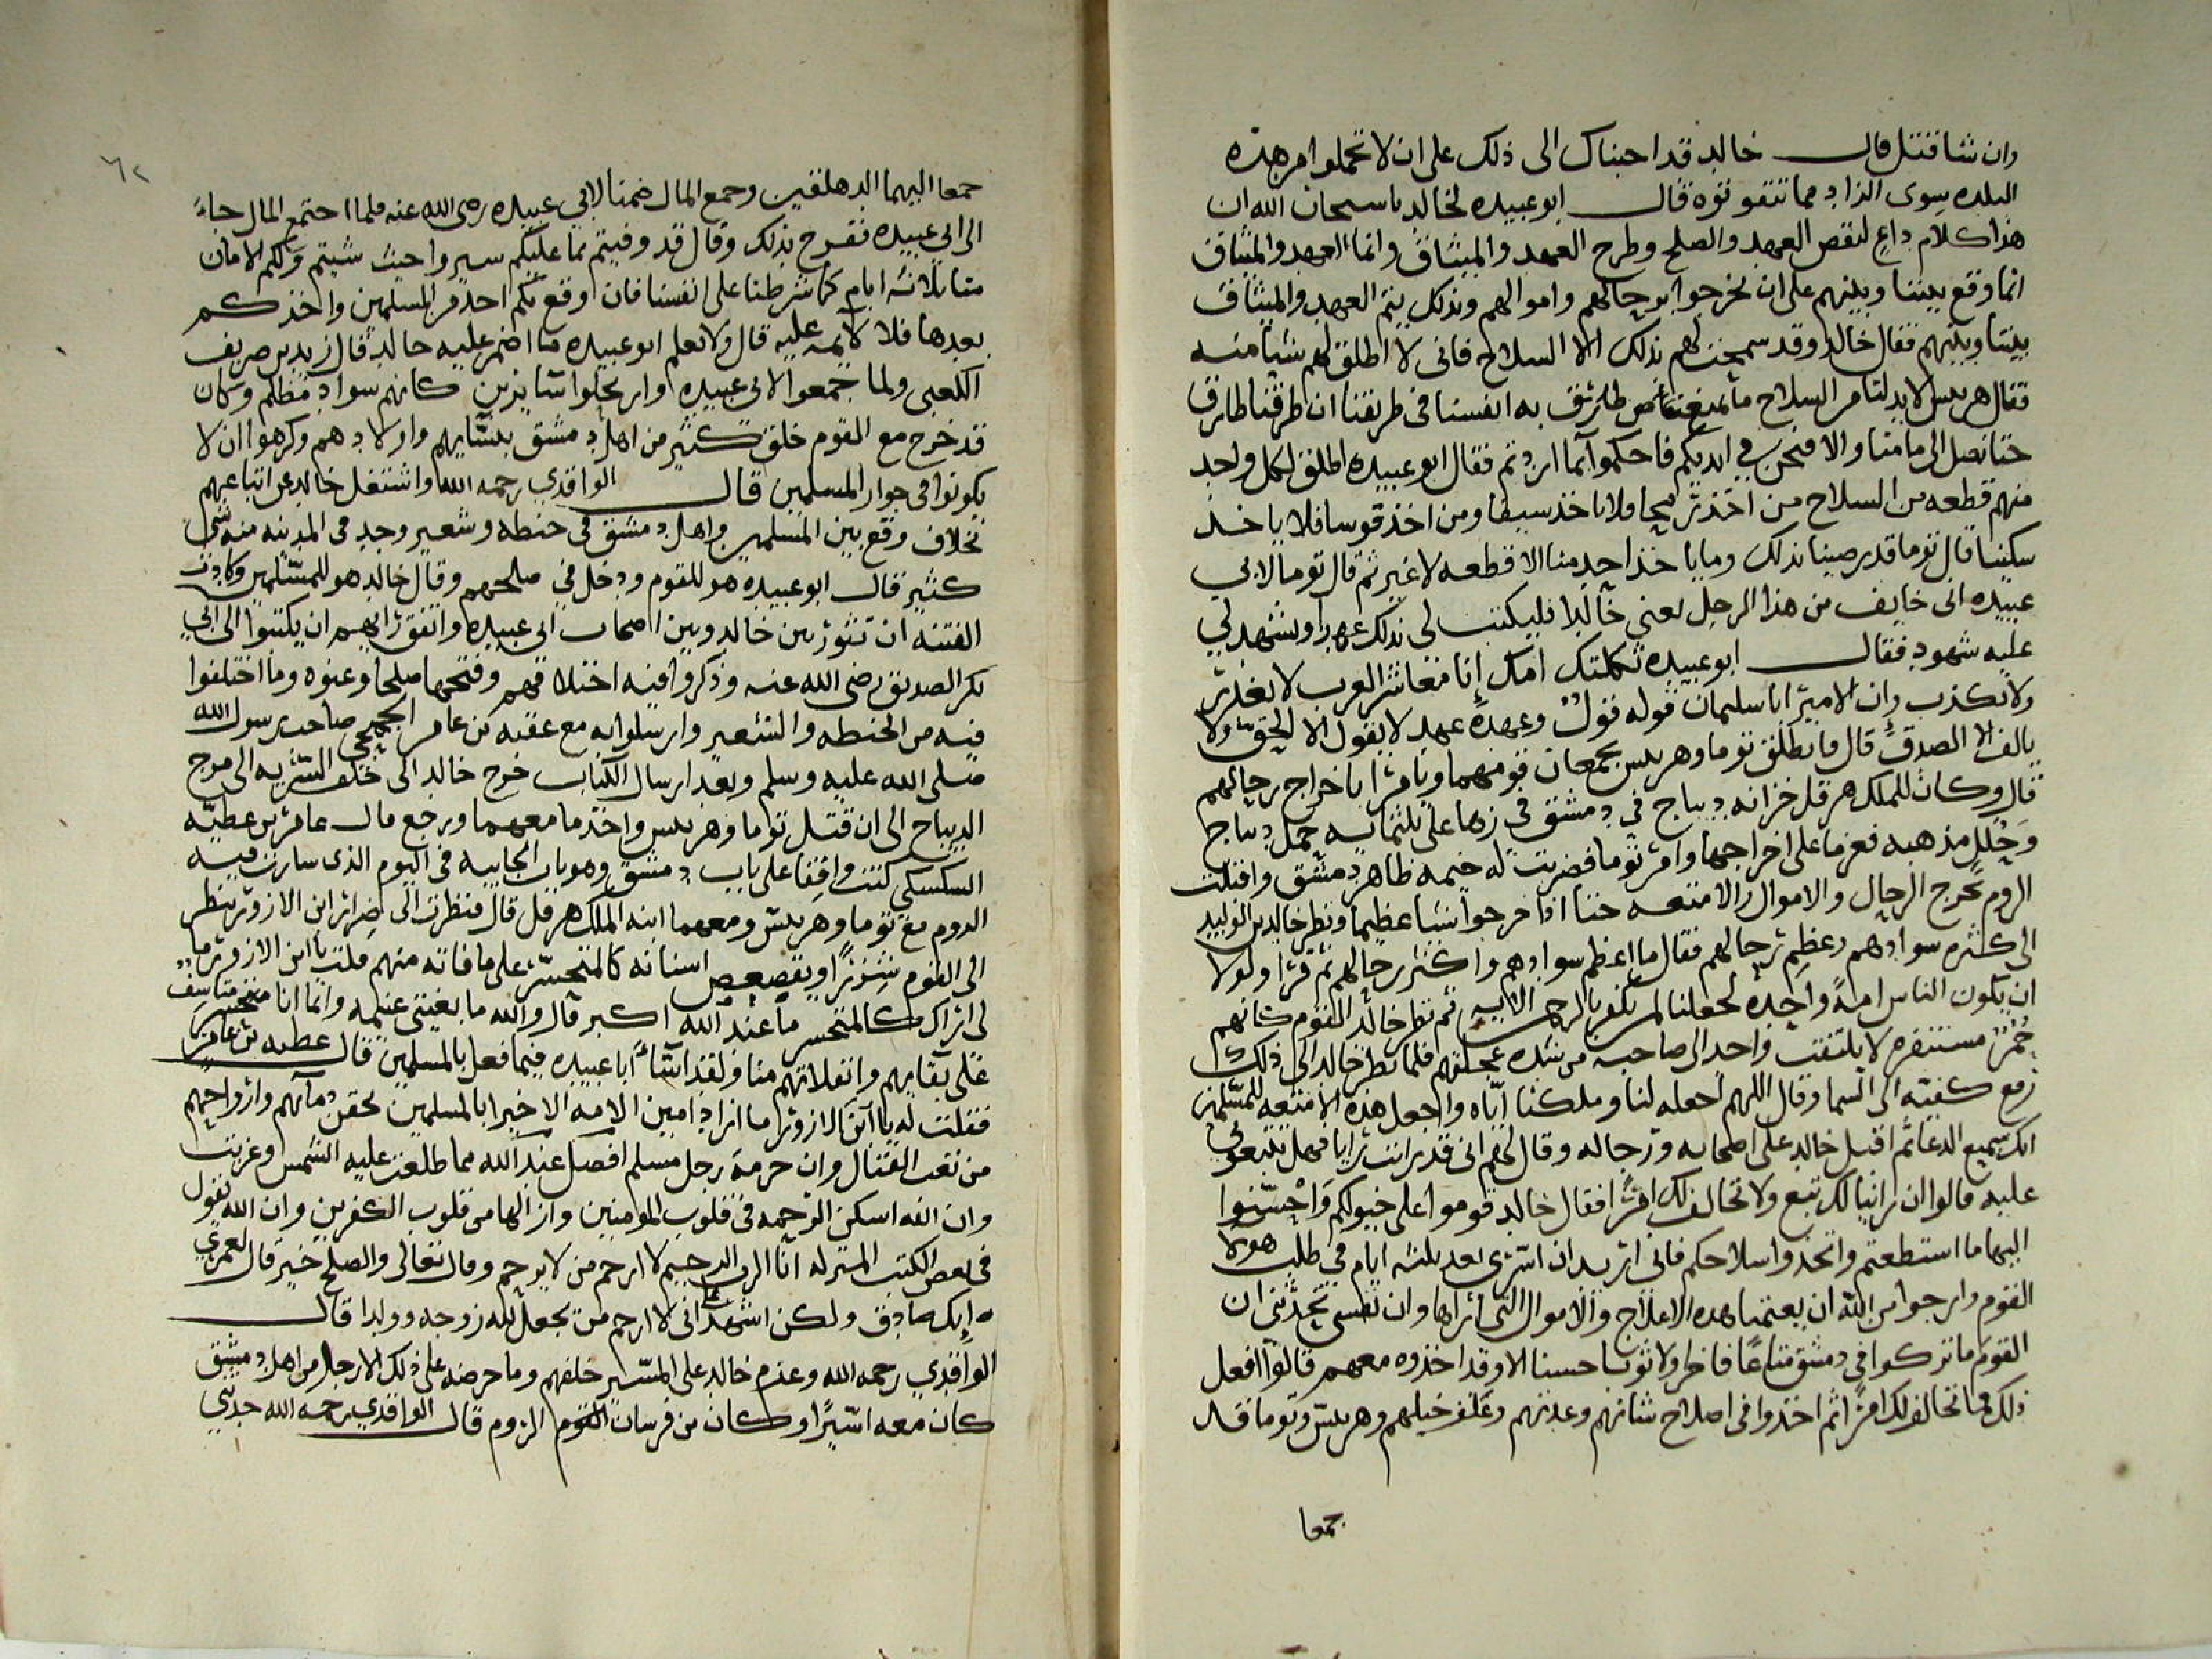 وان شا قتل قال خالد قد اجبناك الى ذلك على ان لا تحملوا من هذه
البلده سوى الزاد مما تتقوتوه قال ابو عبيده لخالد يا سبحان الله ان
هذا كلام داع لنقص العهد والصلح وطرح العهد والميثاق وانما العهد والميثاق
انما وقع بيننا وبينهم على ان يخرجوا برحالهم واموالهم وبذلك يتم العهد والميثاق
بيننا وبينهم فقال خالد وقد سمحت لهم بذلك الا السلاح فانى لا اطلق لهم شيا منه
فقال هربيس لا بد لنا من السلاح به انفسنا فى طريقنا ان طرقنا طارق
حتا نصل الى مامنا والا فنحن في ايديكم فاحكموا بما اردتم فقال ابو عبيده اطلق لكل واحد
منهم قطعه من السلاح من اخذ رمحا فلا ياخذ سيفا ومن اخذ قوسا فلا ياخذ
سكينا قال توما قد رضينا بذلك وما ياخذ احد منا الا قطعه لا غير ثم قال توما لابي
عبيده انى خايف من هذا الرجل يعني خالدا فليكتب لى بذلك عهدا ويشهد لي
عليه شهود فقال ابو عبيده ثكلتك امك انا معاشر العرب لا نغدر
ولا نكذب وان الامير ابا سليمان قوله قول وعهده عهد لا يقول الا الحق ولا
يالف الا الصدق قال فانطلق توما وهربيس يجمعان قومهما ويامرا باخراج رحالهم
قال وكان للملك هرقل خزانه ديباج في دمشق فى زها على ثلثمايه حمل ديباج
وحلل مذهبه فعزما على اخراجها وامر توما فضربت له خيمه ظاهر دمشق واقبلت
الروم تخرج الرحال والاموال والامتعه حتا اذا اخرجوا شيا عظيما ونظر خالد بن الوليد
الى كثره سوادهم وعظم رحالهم فقال ما اعظم سوادهم واكثر رحالهم ثم قرا ولولا
ان يكون الناس امة واحده لجعلنا لمن يكفر بالرحمن الايه ثم نظر خالد القوم كانهم
حمر مستنفره لا يلتفت واحد الى صاحبه من شده عجلتهم فلما نظر خالد الى ذلك
رفع كفيه الى السما وقال اللهم اجعله لنا وملكنا اياه واجعل هذه الامتعه للمسلمين
انك سميع الدعا ثم اقبل خالد على اصحابه ورجاله وقال لهم انى قد رايت رايا فهل تتبعوني
عليه قالوا ان راينا لك تبع ولا نخالف لك امرا فقال خالد قوموا على خيولكم واحسنوا
اليها ما استطعتم واتخذوا سلاحكم فانى اريد ان اسرى بعد ثلثه ايام في طلب هولا
القوم وارجوا من الله ان يغنمنا هده الاعلاج والاموال التى اراها وان نفسى تحدثنى ان
القوم ما تركوا في دمشق متاعا فاخرا ولا ثوبا حسنا الا وقد اخذوه معهم قالوا افعل
ذلك فما نخالف لك امرا ثم اخذوا فى اصلاح شانهم وعدتهم وعلف خيلهم وهربيس وتوما قد
جمعا
٦٢
جمعا اليهما الدهاقين وجمع المال ضمنا لابي عبيده رضى الله عنه فلما اجتمع المال جاء
الى ابي عبيده ففرح بذلك وقال قد وفيتم بما عليكم سيروا حيث شيتم ولكم الامان
منا ثلاثه ايام كما شرطنا على انفسنا فان وقع بكم احد من المسلمين واخذكم
بعدها فلا لايمه عليه قال ولا يعلم ابو عبيده ما اضمر عليه خالد قال زيد بن ضريف
الكلعبى ولما جمعوا لابى عبيده وارتحلوا سايرين كانهم سواد مظلم وكان
قد خرج مع القوم خلق كثير من اهل دمشق بنسايهم واولادهم وكرهوا ان لا
يكونوا فى جوار المسلمين قال الواقدي رحمه الله واشتغل خالد عن اتباعهم
بخلاف وقع بين المسلمين واهل دمشق فى حنطه وشعير وجد فى المدينه منه شى
كثير قال ابو عبيده هو للقوم ودخل في صلحهم وقال خالد هو للمسلمين وكادت
الفتنه ان تثور بين خالد وبين اصحاب ابى عبيده واتفق رايهم ان يكتبوا الى ابي
بكر الصديق رضى الله عنه وذكروا فيه اختلافهم وفتحها صلحا وعنوه وما اختلفوا
فيه من الحنطه والشعير وارسلوا به مع عقبه بن عامر الجهني صاحب رسول الله
صلى الله عليه وسلم وبعد ارسال الكتاب خرج خالد الى خلف السريه الى مرج
الديباج الى ان قتل توما وهربيس واخذ ما معهما ورجع قال عامر بن عطيه
السكسكي كنت واقفا على باب دمشق وهو باب الجابيه فى اليوم الذى سارت فيه
الروم مع توما وهربيس ومعهما ابنه الملك هرقل قال فنظرت الى ضرار ابن الازور ينظر
الى القوم شزرا ويقصعص اسنانه كالمتحسر على ما فاته منهم قلت يا ابن الازور ما
لى اراك كالمتحسر ما عند الله اكبر قال والله ما بغيتى غنيمه وانما انا متحسر متاسف
على بقايهم وانفلاتهم منا ولقد اسا ابا عبيده فيما فعل بالمسلمين قال عطيه بن عامر
فقلت له يا ابن الازور ما اراد امين الامه الا خيرا بالمسلمين لحقن دمآئهم وازواحهم
من تعب القتال وان حرمة رجل مسلم افضل عند الله مما طلعت عليه الشمس وغربت
وان الله اسكن الرحمه فى قلوب المومنين وازالها من قلوب الكفرين وان الله يقول
فى بعض الكتب المنزله انا الرب الرحيم لا ارحم من لا يرحم وقال تعالى والصلح خير قال لعمري
انك صادق ولكن اشهد انى لا ارحم من يجعل لله زوجه وولدا قال
الواقدي رحمه الله وعزم خالد على المسير خلفهم وما حرضه على ذلك الا رجل من اهل دمشق
كان معه اسيرا وكان من فرسان القوم الروم قال الواقدي رحمه الله حدثني